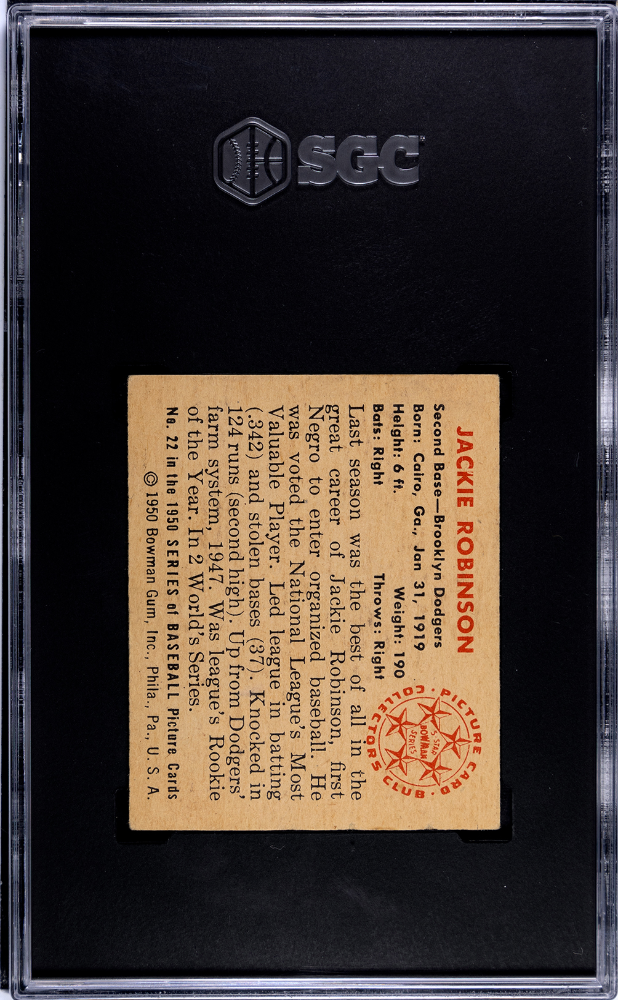 SGC
JACKIE ROBINSON
Second Base—Brooklyn Dodgers
Born: Cairo, Ga., Jan 31, 1919
Height: 6 ft. Weight: 190
Bats: Right Throws: Right
PICTURE CARD COLLECTORS CLUB
5 STAR
BOWMAN
SERIES
Last season was the best of all in the
great career of Jackie Robinson, first
Negro to enter organized baseball. He
was voted the National League's Most
Valuable Player. Led league in batting
(.342) and stolen bases (37). Knocked in
124 runs (second high). Up from Dodgers'
farm system, 1947. Was league's Rookie
of the Year. In 2 World's Series.
No. 22 in the 1950 SERIES of BASEBALL Picture Cards
© 1950 Bowman Gum, Inc., Phila., Pa., U. S. A.